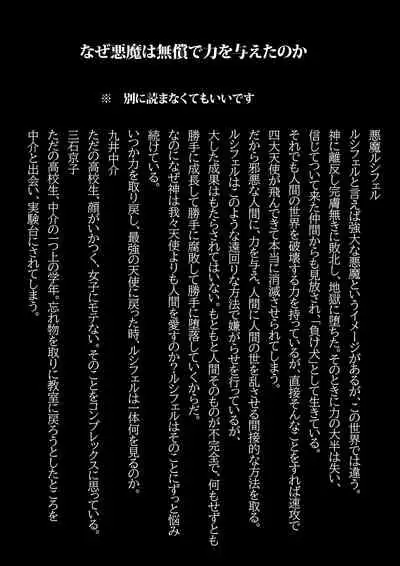 なぜ悪魔は無償で力を与えたのか
※ 別に読まなくてもいいです
悪魔ルシフェル
ルシフェルと言えば強大な悪魔というイメージがあるが、この世界では違う。
神に離反し完膚無きに敗北し、地獄に堕ちた。そのときに力の大半は失い、
信じてついて来た仲間からも見放され、「負け犬」として生きている。
それでも人間の世界を破壊する力を持っているが、直接そんなことをすれば速攻で
四大天使が飛んできて本当に消滅させられてしまう。
だから邪悪な人間に、力を与え、人間に人間の世を乱させる間接的な方法を取る。
ルシフェルはこのような遠回りな方法で嫌がらせを行っているが、
大した成果はもたらされてはいない。もともと人間そのものが不完全で、何もせずとも
勝手に成長して勝手に腐敗して勝手に堕落していくからだ。
なのになぜ神は我々天使よりも人間を愛するのか?ルシフェルはそのことにずっと悩み
続けている。
いつか力を取り戻し、最強の天使に戻った時、ルシフェルは一体何を見るのか。
九井中介
ただの高校生、顔がいかつく、女子にモテない。そのことをコンプレックスに思っている。
三石京子
ただの高校生、中介の二つ上の学年。忘れ物を取りに教室に戻ろうとしたところを
中介と出会い、実験台にされてしまう。